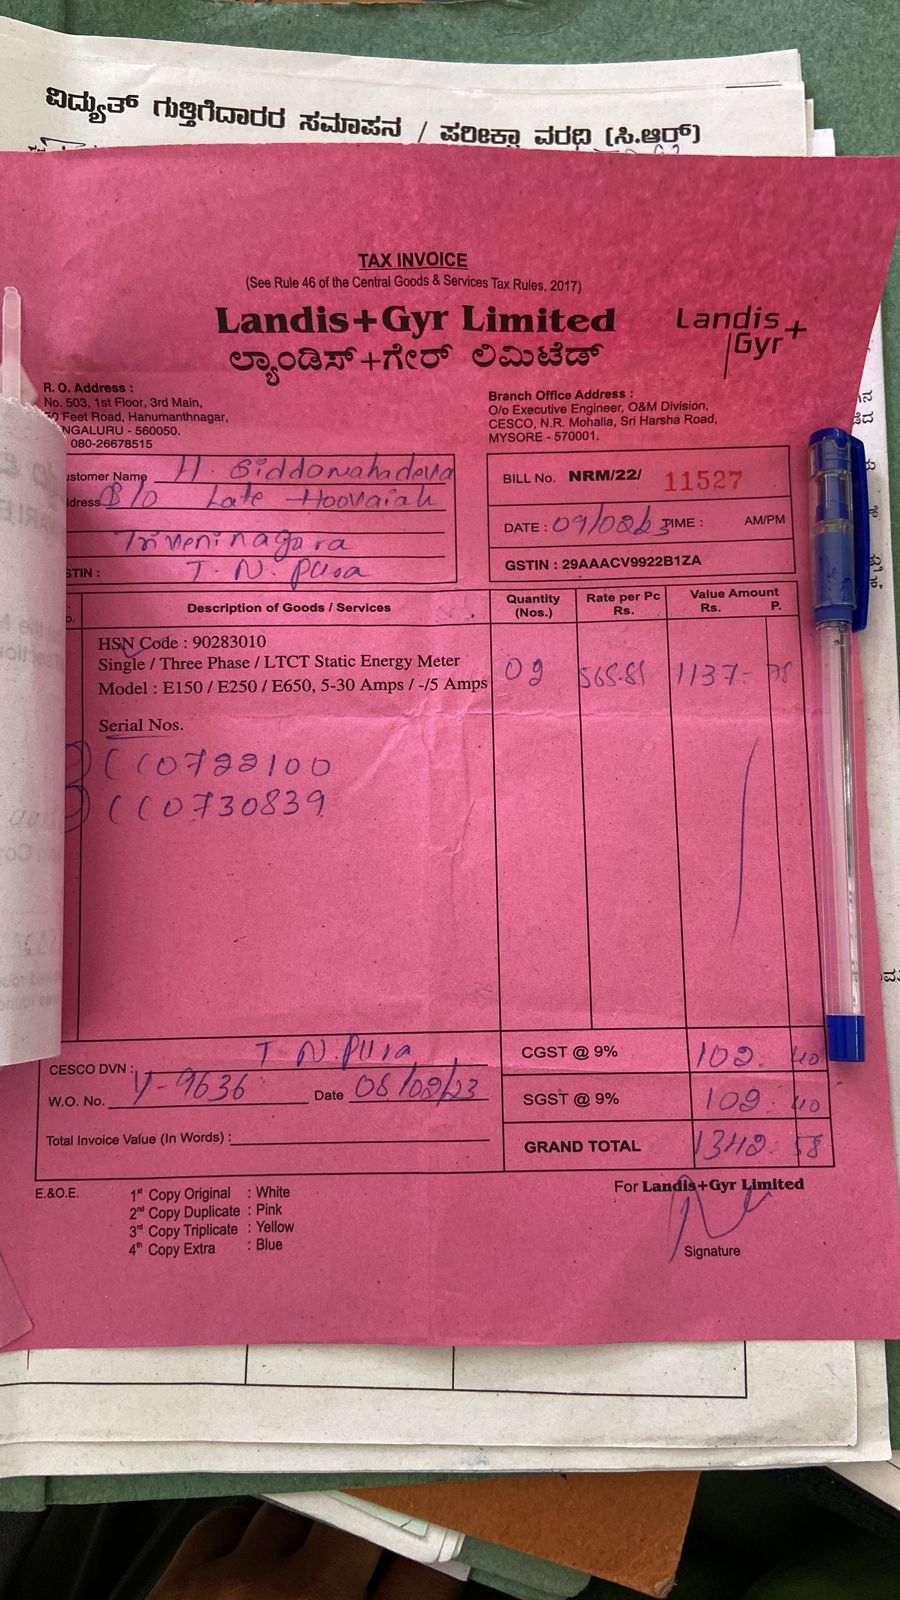 ವಿದ್ಯುತ್ ಗುತ್ತಿಗೆದಾರರ ಸಮಾಪನ / ಪರೀಕ್ಷಾ ವರಧಿ (ಸಿ.ಆರ್)
TAX INVOICE
(See Rule 46 of the Central Goods & Services Tax Rules, 2017)
Landis+Gyr Limited
Landis+
Gyr
ಲ್ಯಾಂಡಿಸ್+ಗೇರ್ ಲಿಮಿಟೆಡ್
R. O. Address :
No. 503, 1st Floor, 3rd Main,
0 Feet Road, Hanumanthnagar,
NGALURU - 560050.
080-26678515
Branch Office Address :
O/o Executive Engineer, O&M Division,
CESCO, N.R. Mohalla, Sri Harsha Road,
MYSORE - 570001.
ustomer Name H. Siddamahadeva
dress S/o Late Hoovaiah
Triveninagara
STIN : T. N. Pura
BILL No. NRM/22/ 11527
DATE : 09/02/23 TIME : AM/PM
GSTIN : 29AAACV9922B1ZA
Description of Goods / Services
Quantity (Nos.)
Rate per Pc Rs.
Value Amount Rs. P.
HSN Code : 90283010
Single / Three Phase / LTCT Static Energy Meter
Model : E150 / E250 / E650, 5-30 Amps / -/5 Amps
02 1137- 78
Serial Nos.
CC0722100
CC0730839
CESCO DVN : T. N. Pura
W.O. No. Y-9636 Date 08/02/23
Total Invoice Value (In Words) :
CGST @ 9% 102. 40
SGST @ 9% 102. 40
GRAND TOTAL 1342. 58
E.&O.E.
1st Copy Original : White
2nd Copy Duplicate : Pink
3rd Copy Triplicate : Yellow
4th Copy Extra : Blue
For Landis+Gyr Limited
Signature